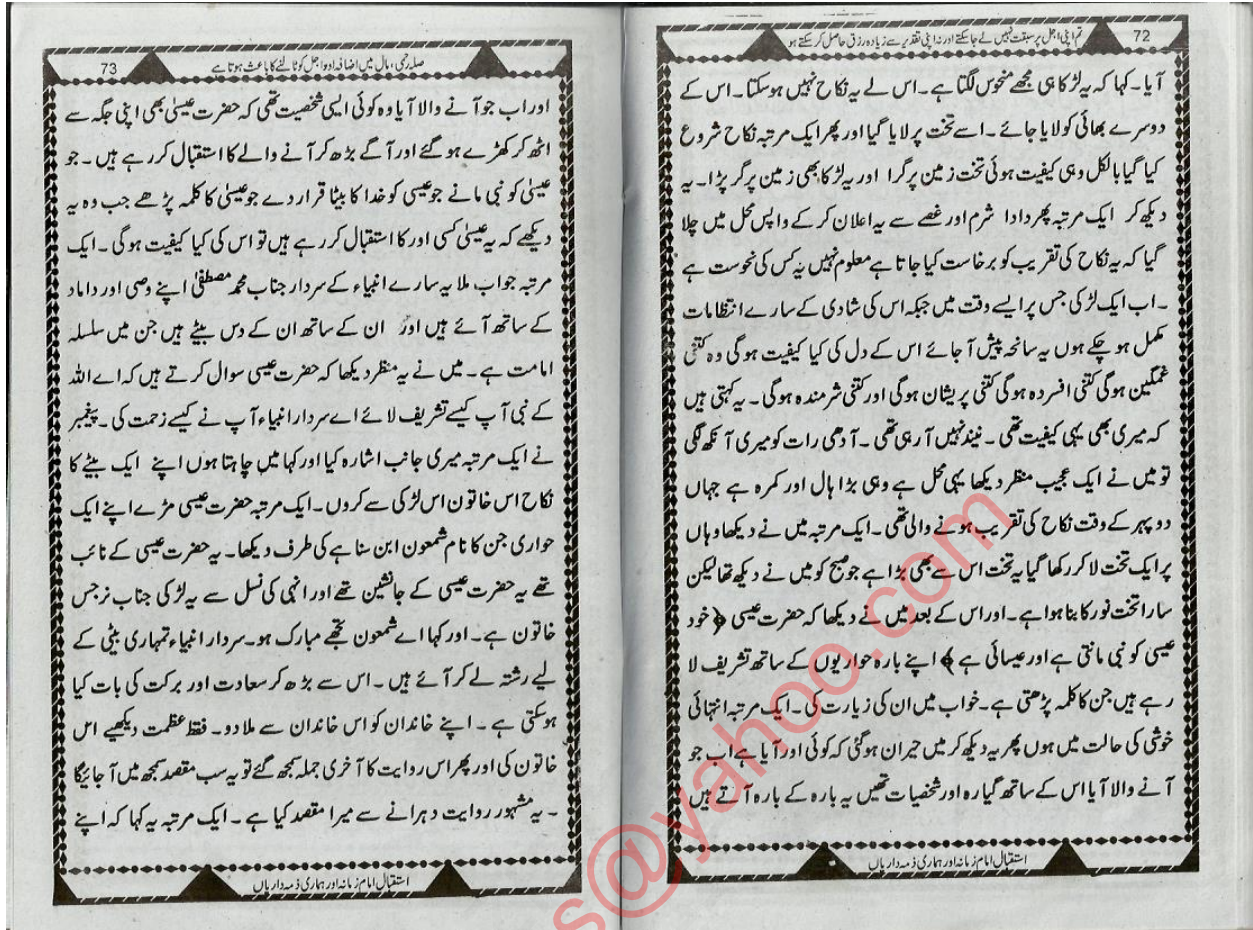 72
تم اپنی اجل پر سبقت نہیں لے جا سکتے اور نہ اپنی تقدیر سے زیادہ رزق حاصل کر سکتے ہو
آیا۔ کہا کہ یہ لڑکا ہی مجھے منحوس لگتا ہے۔ اس لے یہ نکاح نہیں ہو سکتا۔ اس کے
دوسرے بھائی کو لایا جائے۔ اسے تخت پر لایا گیا اور پھر ایک مرتبہ نکاح شروع
کیا گیا بالکل وہی کیفیت ہوئی تخت زمین پر گرا اور یہ لڑکا بھی زمین پر گر پڑا۔ یہ
دیکھ کر ایک مرتبہ پھر دادا شرم اور غصے سے یہ اعلان کر کے واپس محل میں چلا
گیا کہ یہ نکاح کی تقریب کو برخاست کیا جاتا ہے معلوم نہیں یہ کس کی نحوست ہے
۔ اب ایک لڑکی جس پر ایسے وقت میں جبکہ اس کی شادی کے سارے انتظامات
مکمل ہو چکے ہوں یہ سانحہ پیش آ جائے اس کے دل کی کیا کیفیت ہوگی وہ کتنی
غمگین ہوگی کتنی افسردہ ہوگی کتنی پریشان ہوگی اور کتنی شرمندہ ہوگی۔ یہ کہتی ہیں
کہ میری بھی یہی کیفیت تھی۔ نیند نہیں آ رہی تھی۔ آدھی رات کو میری آنکھ لگی
تو میں نے ایک عجیب منظر دیکھا یہی محل ہے وہی بڑا ہال اور کمرہ ہے جہاں
دوپہر کے وقت نکاح کی تقریب ہونے والی تھی۔ ایک مرتبہ میں نے دیکھا وہاں
پر ایک تخت لا کر رکھا گیا یہ تخت اس سے بھی بڑا ہے جو صبح کو میں نے دیکھ تھا لیکن
سارا تخت نور کا بنا ہوا ہے۔ اور اس کے بعد میں نے دیکھا کہ حضرت عیسی ﴿ خود
عیسی کو نبی مانتی ہے اور عیسائی ہے ﴾ اپنے بارہ حواریوں کے ساتھ تشریف لا
رہے ہیں جن کا کلمہ پڑھتی ہے۔ خواب میں ان کی زیارت کی۔ ایک مرتبہ انتہائی
خوشی کی حالت میں ہوں پھر یہ دیکھ کر میں حیران ہوگئی کہ کوئی اور آیا ہے اب جو
آنے والا آیا اس کے ساتھ گیارہ اور شخصیات تھیں یہ بارہ کے بارہ آتے ہیں
استقبال امام زمانہ اور ہماری ذمہ داریاں
73
صلہ رحمی، مال میں اضافہ اور اجل کو ٹالنے کا باعث ہوتا ہے
اور اب جو آنے والا آیا وہ کوئی ایسی شخصیت تھی کہ حضرت عیسیٰ بھی اپنی جگہ سے
اٹھ کر کھڑے ہو گئے اور آگے بڑھ کر آنے والے کا استقبال کر رہے ہیں۔ جو
عیسیٰ کو نبی مانے جو عیسی کو خدا کا بیٹا قرار دے جو عیسیٰ کا کلمہ پڑھے جب وہ یہ
دیکھے کہ یہ عیسیٰ کسی اور کا استقبال کر رہے ہیں تو اس کی کیا کیفیت ہوگی۔ ایک
مرتبہ جواب ملا یہ سارے انبیاء کے سردار جناب محمد مصطفیٰ اپنے وصی اور داماد
کے ساتھ آئے ہیں اور ان کے ساتھ ان کے دس بیٹے ہیں جن میں سلسلہ
امامت ہے۔ میں نے یہ منظر دیکھا کہ حضرت عیسی سوال کرتے ہیں کہ اے اللہ
کے نبی آپ کیسے تشریف لائے اے سردار انبیاء آپ نے کیسے زحمت کی۔ پیغمبر
نے ایک مرتبہ میری جانب اشارہ کیا اور کہا میں چاہتا ہوں اپنے ایک بیٹے کا
نکاح اس خاتون اس لڑکی سے کروں۔ ایک مرتبہ حضرت عیسی مڑے اپنے ایک
حواری جن کا نام شمعون ابن سنا ہے کی طرف دیکھا۔ یہ حضرت عیسی کے نائب
تھے یہ حضرت عیسی کے جانشین تھے اور انہی کی نسل سے یہ لڑکی جناب نرجس
خاتون ہے۔ اور کہا اے شمعون تجھے مبارک ہو۔ سردار انبیاء تمہاری بیٹی کے
لیے رشتہ لے کر آئے ہیں۔ اس سے بڑھ کر سعادت اور برکت کی بات کیا
ہوسکتی ہے۔ اپنے خاندان کو اس خاندان سے ملا دو۔ فقط عظمت دیکھیے اس
خاتون کی اور پھر اس روایت کا آخری جملہ سمجھ گئے تو یہ سب مقصد سمجھ میں آ جائیگا
۔ یہ مشہور روایت دہرانے سے میرا مقصد کیا ہے۔ ایک مرتبہ یہ کہا کہ اپنے
استقبال امام زمانہ اور ہماری ذمہ داریاں
s@yahoo.com